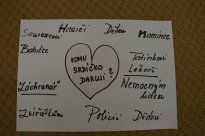 Hasiči
Dětem
Mamince
Sourozenci
Babičce
KOMU
SRDÍČKO
DARUJI?
Tatínkovi
Lékaři
Nemocným
lidem
Záchranář
Zvířátkům
Policii
Dědovi